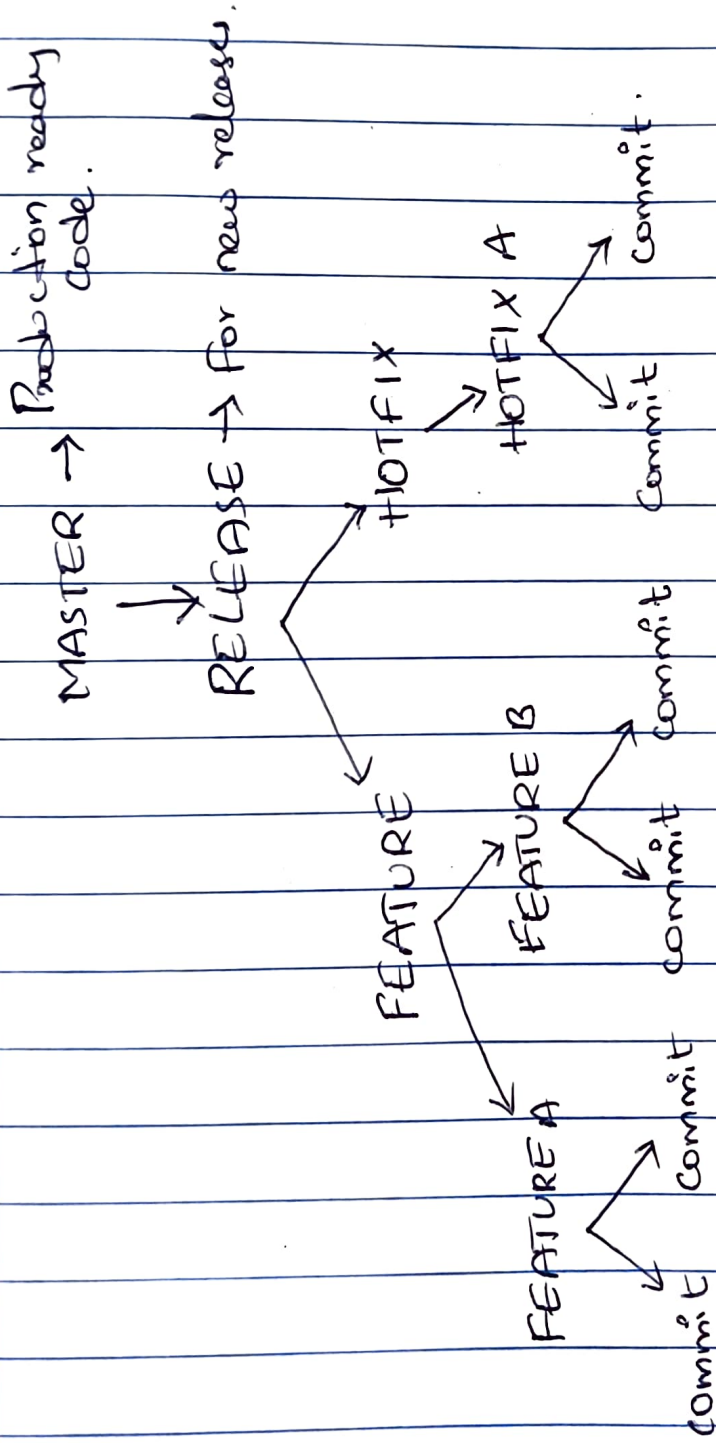 MASTER → Production ready
code.
RELEASE → For new release.
FEATURE HOTFIX
FEATURE A FEATURE B HOTFIX A
commit commit commit commit commit commit.